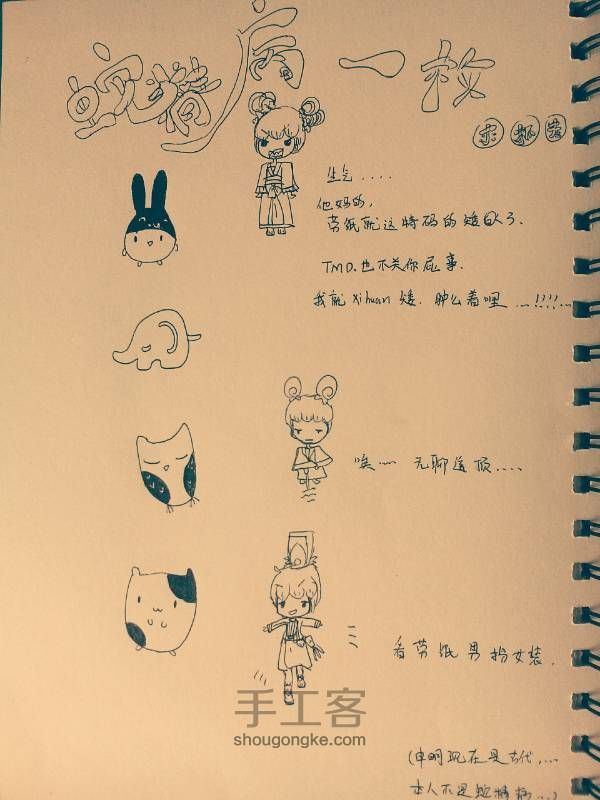 蛇精病一枚
求抓黄
生气....
他妈的,
劳纸就这特码的矮肿了.
TMD.也不关你屁事.
我就xihuan矮.肿么着哩...!!!!...
唉…… 无聊透顶....
看劳纸男扮女装.
(申明现在是古代....
本人不是蛇精病...)
手工客
shougongke.com